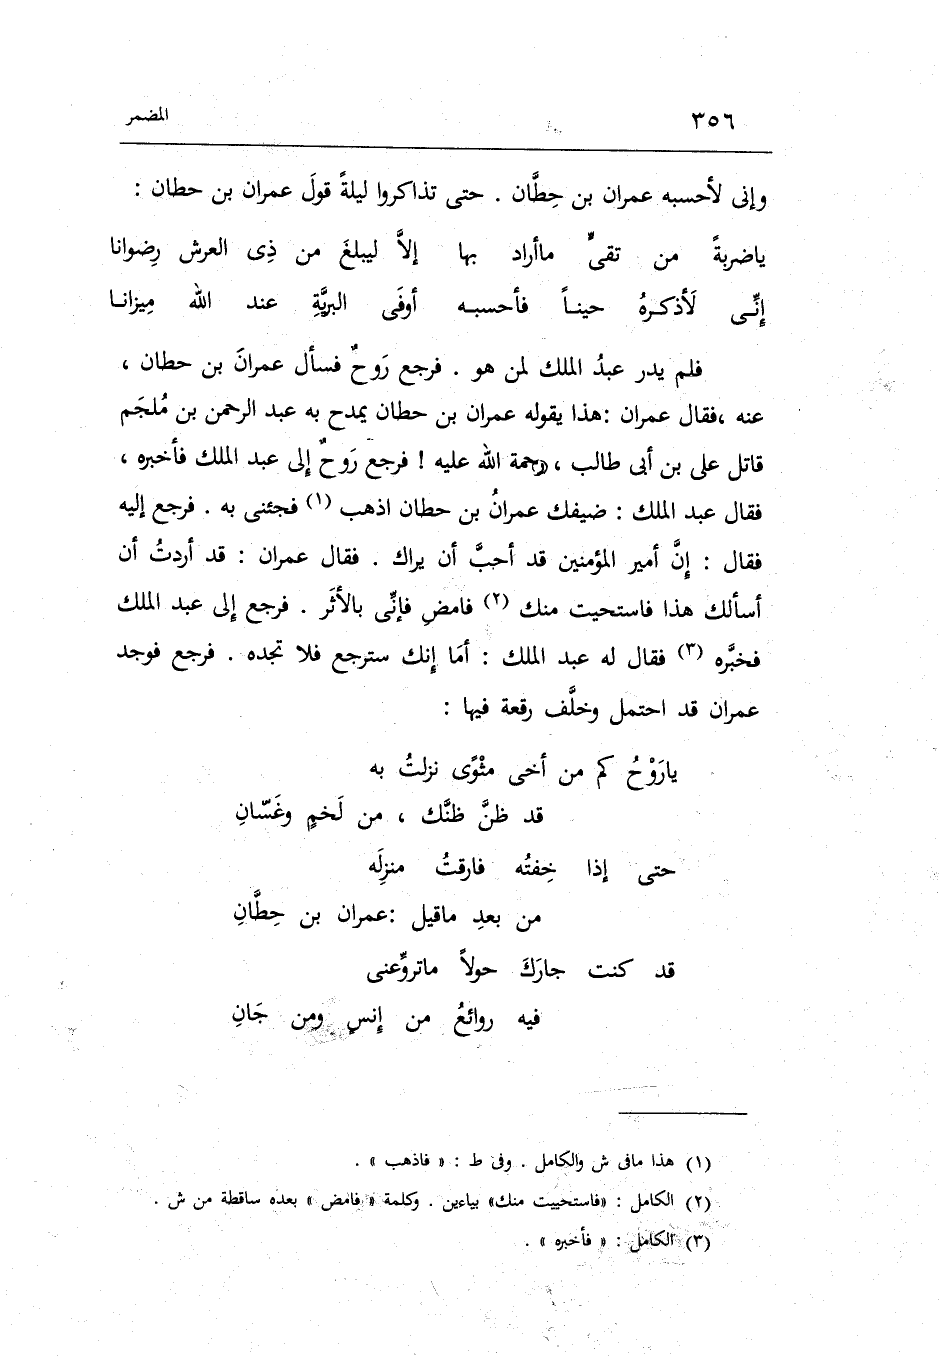 ٣٥٦
المضمر
وإنى لأحسبه عمران بن حِطَّان . حتى تذاكروا ليلةً قولَ عمران بن حطان :
ياضربةً من تقىٍّ ماأراد بها إلاَّ ليبلغَ من ذِى العرش رِضوانا
إنِّى لَأذكرهُ حيناً فأحسبه أوفَى البريَّةِ عند الله مِيزانا
فلم يدر عبدُ الملك لمن هو . فرجع رَوحٌ فسأل عمرانَ بن حطان ،
عنه ،فقال عمران :هذا يقوله عمران بن حطان يمدح به عبد الرحمن بن مُلجَم
قاتل على بن أبى طالب ، رحمة الله عليه ! فرجع رَوحٌ إلى عبد الملك فأخبره ،
فقال عبد الملك : ضيفك عمرانُ بن حطان اذهب (١) فجئنى به . فرجع إليه
فقال : إنَّ أمير المؤمنين قد أحبَّ أن يراك . فقال عمران : قد أردتُ أن
أسألك هذا فاستحيت منك (٢) فامضِ فإنِّى بالأثَر . فرجع إلى عبد الملك
فخبَّره (٣) فقال له عبد الملك : أمَا إنك سترجع فلا تجده . فرجع فوجد
عمران قد احتمل وخلَّف رقعة فيها :
يارَوْحُ كم من أخى مثْوًى نزلتُ به
قد ظنَّ ظنَّك ، من لَخمٍ وغَسّانِ
حتى إذا خِفتُه فارقتُ منزلَه
من بعدِ ماقيل :عمران بن حِطَّانِ
قد كنت جارَكَ حولاً ماتروِّعنى
فيه روائعُ من إنسٍ ومن جَانِ
(١) هذا مافى ش والكامل . وفى ط : « فاذهب » .
(٢) الكامل : «فاستحييت منك» بياءين . وكلمة « فامض » بعده ساقطة من ش .
(٣) الكامل : « فأخبره » .